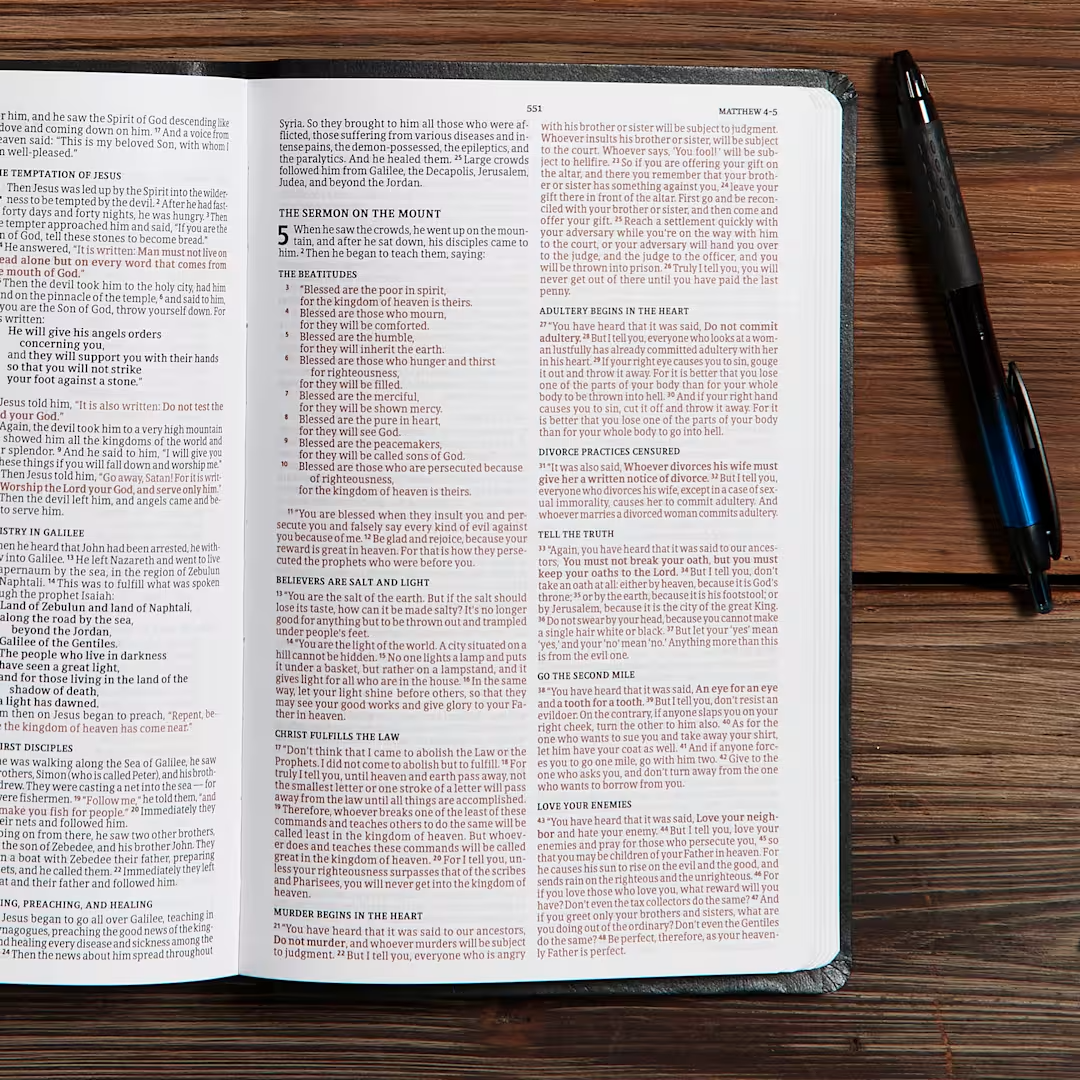 r him, and he saw the Spirit of God descending like
dove and coming down on him. 17 And a voice from
eaven said: "This is my beloved Son, with whom I
m well-pleased."
E TEMPTATION OF JESUS
Then Jesus was led up by the Spirit into the wilder-
ness to be tempted by the devil. 2 After he had fast-
forty days and forty nights, he was hungry. 3 Then
e tempter approached him and said, "If you are the
n of God, tell these stones to become bread."
4 He answered, "It is written: Man must not live on
ead alone but on every word that comes from
e mouth of God."
Then the devil took him to the holy city, had him
nd on the pinnacle of the temple, 6 and said to him,
you are the Son of God, throw yourself down. For
s written:
He will give his angels orders
concerning you,
and they will support you with their hands
so that you will not strike
your foot against a stone."
Jesus told him, "It is also written: Do not test the
d your God."
Again, the devil took him to a very high mountain
showed him all the kingdoms of the world and
r splendor. 9 And he said to him, "I will give you
hese things if you will fall down and worship me."
Then Jesus told him, "Go away, Satan! For it is writ-
Worship the Lord your God, and serve only him."
Then the devil left him, and angels came and be-
to serve him.
ISTRY IN GALILEE
hen he heard that John had been arrested, he with-
v into Galilee. 13 He left Nazareth and went to live
apernaum by the sea, in the region of Zebulun
Naphtali. 14 This was to fulfill what was spoken
ugh the prophet Isaiah:
Land of Zebulun and land of Naphtali,
along the road by the sea,
beyond the Jordan,
Galilee of the Gentiles.
The people who live in darkness
have seen a great light,
and for those living in the land of the
shadow of death,
a light has dawned.
m then on Jesus began to preach, "Repent, be-
e the kingdom of heaven has come near."
IRST DISCIPLES
he was walking along the Sea of Galilee, he saw
rothers, Simon (who is called Peter), and his broth-
drew. They were casting a net into the sea — for
were fishermen. 19 "Follow me," he told them, "and
make you fish for people." 20 Immediately they
eir nets and followed him.
oing on from there, he saw two other brothers,
the son of Zebedee, and his brother John. They
n a boat with Zebedee their father, preparing
ets, and he called them. 22 Immediately they left
at and their father and followed him.
ING, PREACHING, AND HEALING
Jesus began to go all over Galilee, teaching in
ynagogues, preaching the good news of the king-
nd healing every disease and sickness among the
24 Then the news about him spread throughout
551
MATTHEW 4–5
Syria. So they brought to him all those who were af-
flicted, those suffering from various diseases and in-
tense pains, the demon-possessed, the epileptics, and
the paralytics. And he healed them. 25 Large crowds
followed him from Galilee, the Decapolis, Jerusalem,
Judea, and beyond the Jordan.
THE SERMON ON THE MOUNT
5 When he saw the crowds, he went up on the moun-
tain, and after he sat down, his disciples came to
him. 2 Then he began to teach them, saying:
THE BEATITUDES
3 "Blessed are the poor in spirit,
for the kingdom of heaven is theirs.
4 Blessed are those who mourn,
for they will be comforted.
5 Blessed are the humble,
for they will inherit the earth.
6 Blessed are those who hunger and thirst
for righteousness,
for they will be filled.
7 Blessed are the merciful,
for they will be shown mercy.
8 Blessed are the pure in heart,
for they will see God.
9 Blessed are the peacemakers,
for they will be called sons of God.
10 Blessed are those who are persecuted because
of righteousness,
for the kingdom of heaven is theirs.
11 "You are blessed when they insult you and per-
secute you and falsely say every kind of evil against
you because of me. 12 Be glad and rejoice, because your
reward is great in heaven. For that is how they perse-
cuted the prophets who were before you.
BELIEVERS ARE SALT AND LIGHT
13 "You are the salt of the earth. But if the salt should
lose its taste, how can it be made salty? It's no longer
good for anything but to be thrown out and trampled
under people's feet.
14 "You are the light of the world. A city situated on a
hill cannot be hidden. 15 No one lights a lamp and puts
it under a basket, but rather on a lampstand, and it
gives light for all who are in the house. 16 In the same
way, let your light shine before others, so that they
may see your good works and give glory to your Fa-
ther in heaven.
CHRIST FULFILLS THE LAW
17 "Don't think that I came to abolish the Law or the
Prophets. I did not come to abolish but to fulfill. 18 For
truly I tell you, until heaven and earth pass away, not
the smallest letter or one stroke of a letter will pass
away from the law until all things are accomplished.
19 Therefore, whoever breaks one of the least of these
commands and teaches others to do the same will be
called least in the kingdom of heaven. But whoev-
er does and teaches these commands will be called
great in the kingdom of heaven. 20 For I tell you, un-
less your righteousness surpasses that of the scribes
and Pharisees, you will never get into the kingdom of
heaven.
MURDER BEGINS IN THE HEART
21 "You have heard that it was said to our ancestors,
Do not murder, and whoever murders will be subject
to judgment. 22 But I tell you, everyone who is angry
with his brother or sister will be subject to judgment.
Whoever insults his brother or sister, will be subject
to the court. Whoever says, 'You fool!' will be sub-
ject to hellfire. 23 So if you are offering your gift on
the altar, and there you remember that your broth-
er or sister has something against you, 24 leave your
gift there in front of the altar. First go and be recon-
ciled with your brother or sister, and then come and
offer your gift. 25 Reach a settlement quickly with
your adversary while you're on the way with him
to the court, or your adversary will hand you over
to the judge, and the judge to the officer, and you
will be thrown into prison. 26 Truly I tell you, you will
never get out of there until you have paid the last
penny.
ADULTERY BEGINS IN THE HEART
27 "You have heard that it was said, Do not commit
adultery. 28 But I tell you, everyone who looks at a wom-
an lustfully has already committed adultery with her
in his heart. 29 If your right eye causes you to sin, gouge
it out and throw it away. For it is better that you lose
one of the parts of your body than for your whole
body to be thrown into hell. 30 And if your right hand
causes you to sin, cut it off and throw it away. For it
is better that you lose one of the parts of your body
than for your whole body to go into hell.
DIVORCE PRACTICES CENSURED
31 "It was also said, Whoever divorces his wife must
give her a written notice of divorce. 32 But I tell you,
everyone who divorces his wife, except in a case of sex-
ual immorality, causes her to commit adultery. And
whoever marries a divorced woman commits adultery.
TELL THE TRUTH
33 "Again, you have heard that it was said to our ances-
tors, You must not break your oath, but you must
keep your oaths to the Lord. 34 But I tell you, don't
take an oath at all: either by heaven, because it is God's
throne; 35 or by the earth, because it is his footstool; or
by Jerusalem, because it is the city of the great King.
36 Do not swear by your head, because you cannot make
a single hair white or black. 37 But let your 'yes' mean
'yes,' and your 'no' mean 'no.' Anything more than this
is from the evil one.
GO THE SECOND MILE
38 "You have heard that it was said, An eye for an eye
and a tooth for a tooth. 39 But I tell you, don't resist an
evildoer. On the contrary, if anyone slaps you on your
right cheek, turn the other to him also. 40 As for the
one who wants to sue you and take away your shirt,
let him have your coat as well. 41 And if anyone forc-
es you to go one mile, go with him two. 42 Give to the
one who asks you, and don't turn away from the one
who wants to borrow from you.
LOVE YOUR ENEMIES
43 "You have heard that it was said, Love your neigh-
bor and hate your enemy. 44 But I tell you, love your
enemies and pray for those who persecute you, 45 so
that you may be children of your Father in heaven. For
he causes his sun to rise on the evil and the good, and
sends rain on the righteous and the unrighteous. 46 For
if you love those who love you, what reward will you
have? Don't even the tax collectors do the same? 47 And
if you greet only your brothers and sisters, what are
you doing out of the ordinary? Don't even the Gentiles
do the same? 48 Be perfect, therefore, as your heaven-
ly Father is perfect.